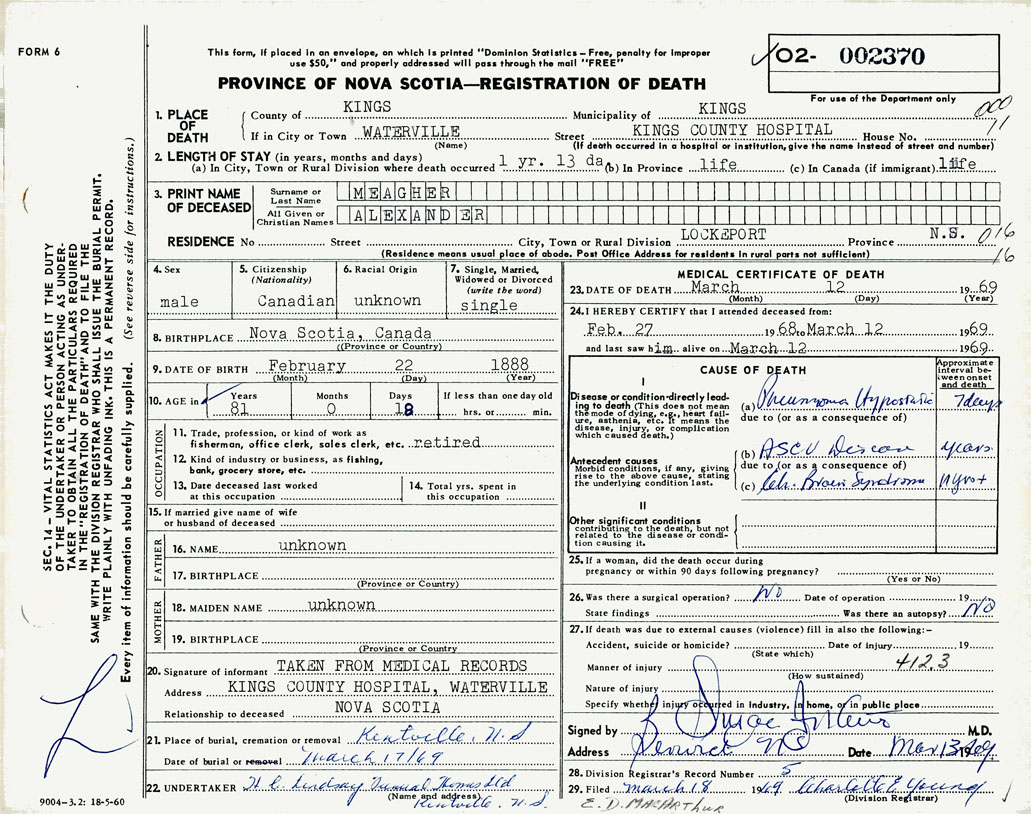 FORM 6
This form, if placed in an envelope, on which is printed "Dominion Statistics – Free, penalty for improper
use $50," and properly addressed will pass through the mail "FREE"
PROVINCE OF NOVA SCOTIA—REGISTRATION OF DEATH
O2- 002370
For use of the Department only
000
71
1. PLACE OF DEATH
County of KINGS Municipality of KINGS
If in City or Town WATERVILLE Street KINGS COUNTY HOSPITAL House No.
(Name) (If death occurred in a hospital or institution, give the name instead of street and number)
2. LENGTH OF STAY (in years, months and days)
(a) In City, Town or Rural Division where death occurred 1 yr. 13 da. (b) In Province life (c) In Canada (if immigrant) life
3. PRINT NAME OF DECEASED
Surname or Last Name MEAGHER
All Given or Christian Names ALEXANDER
RESIDENCE No Street City, Town or Rural Division LOCKEPORT Province N.S. 016
16
(Residence means usual place of abode. Post Office Address for residents in rural parts not sufficient)
4. Sex male
5. Citizenship (Nationality) Canadian
6. Racial Origin unknown
7. Single, Married, Widowed or Divorced (write the word) single
8. BIRTHPLACE Nova Scotia, Canada
(Province or Country)
9. DATE OF BIRTH February 22 1888
(Month) (Day) (Year)
10. AGE in Years 81 Months 0 Days 18 If less than one day old hrs. or min.
OCCUPATION
11. Trade, profession, or kind of work as
fisherman, office clerk, sales clerk, etc. retired
12. Kind of industry or business, as fishing,
bank, grocery store, etc.
13. Date deceased last worked
at this occupation
14. Total yrs. spent in
this occupation
15. If married give name of wife
or husband of deceased
FATHER
16. NAME unknown
17. BIRTHPLACE
(Province or Country)
MOTHER
18. MAIDEN NAME unknown
19. BIRTHPLACE
(Province or Country)
20. Signature of informant TAKEN FROM MEDICAL RECORDS
Address KINGS COUNTY HOSPITAL, WATERVILLE
NOVA SCOTIA
Relationship to deceased
21. Place of burial, cremation or removal Kentville, N.S
Date of burial or removal March 17/69
22. UNDERTAKER H. C. Lindsay Funeral Home Ltd
(Name and address) Kentville, N.S.
MEDICAL CERTIFICATE OF DEATH
23. DATE OF DEATH March 12 1969
(Month) (Day) (Year)
24. I HEREBY CERTIFY that I attended deceased from:
Feb. 27 1968 March 12 1969
and last saw him alive on March 12 1969
CAUSE OF DEATH
Approximate interval between onset and death
I
Disease or condition directly leading to death (This does not mean the mode of dying, e.g., heart failure, asthenia, etc. It means the disease, injury, or complication which caused death.)
(a) Pneumonia Hypostatic 7 days
due to (or as a consequence of)
Antecedent causes
Morbid conditions, if any, giving rise to the above cause, stating the underlying condition last.
(b) ASCV Disease years
due to (or as a consequence of)
(c) Ch. Brain Syndrome 11 yrs+
II
Other significant conditions
contributing to the death, but not related to the disease or condition causing it.
25. If a woman, did the death occur during
pregnancy or within 90 days following pregnancy?
(Yes or No)
26. Was there a surgical operation? No Date of operation 19
State findings Was there an autopsy? No
27. If death was due to external causes (violence) fill in also the following:–
Accident, suicide or homicide? Date of injury 19
(State which)
Manner of injury 412.3
(How sustained)
Nature of injury
Specify whether injury occurred in Industry, in home, or in public place
Signed by M.D.
Address Berwick NS Date Mar 13 1969
28. Division Registrar's Record Number 5
29. Filed March 18 1969 Charlotte E Young
(Division Registrar)
E. D. MacArthur
SEC. 14 – VITAL STATISTICS ACT MAKES IT THE DUTY
OF THE UNDERTAKER OR PERSON ACTING AS UNDER-
TAKER TO OBTAIN ALL THE PARTICULARS REQUIRED
IN THE "REGISTRATION OF DEATH" AND TO FILE THE
SAME WITH THE DIVISION REGISTRAR WHO SHALL ISSUE THE BURIAL PERMIT.
WRITE PLAINLY WITH UNFADING INK. THIS IS A PERMANENT RECORD.
Every item of information should be carefully supplied. (See reverse side for instructions.)
9004–3.2: 18-5-60